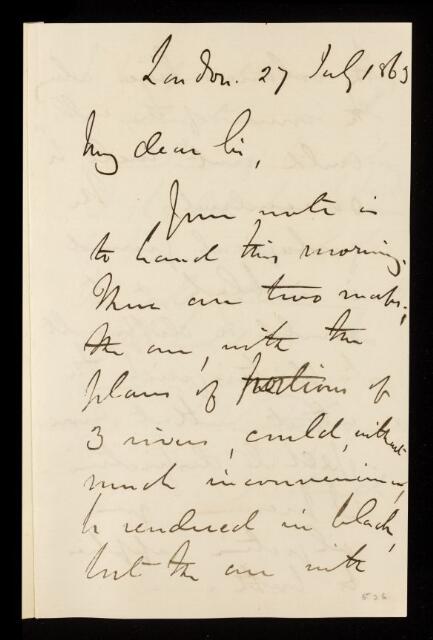 London. 27 July 1863
My dear Sir,
Your note is
to hand this morning.
There are two maps;
the one, with the
plans of portions of
3 rivers, could, without
much inconvenience,
be rendered in black,
but the one with
526